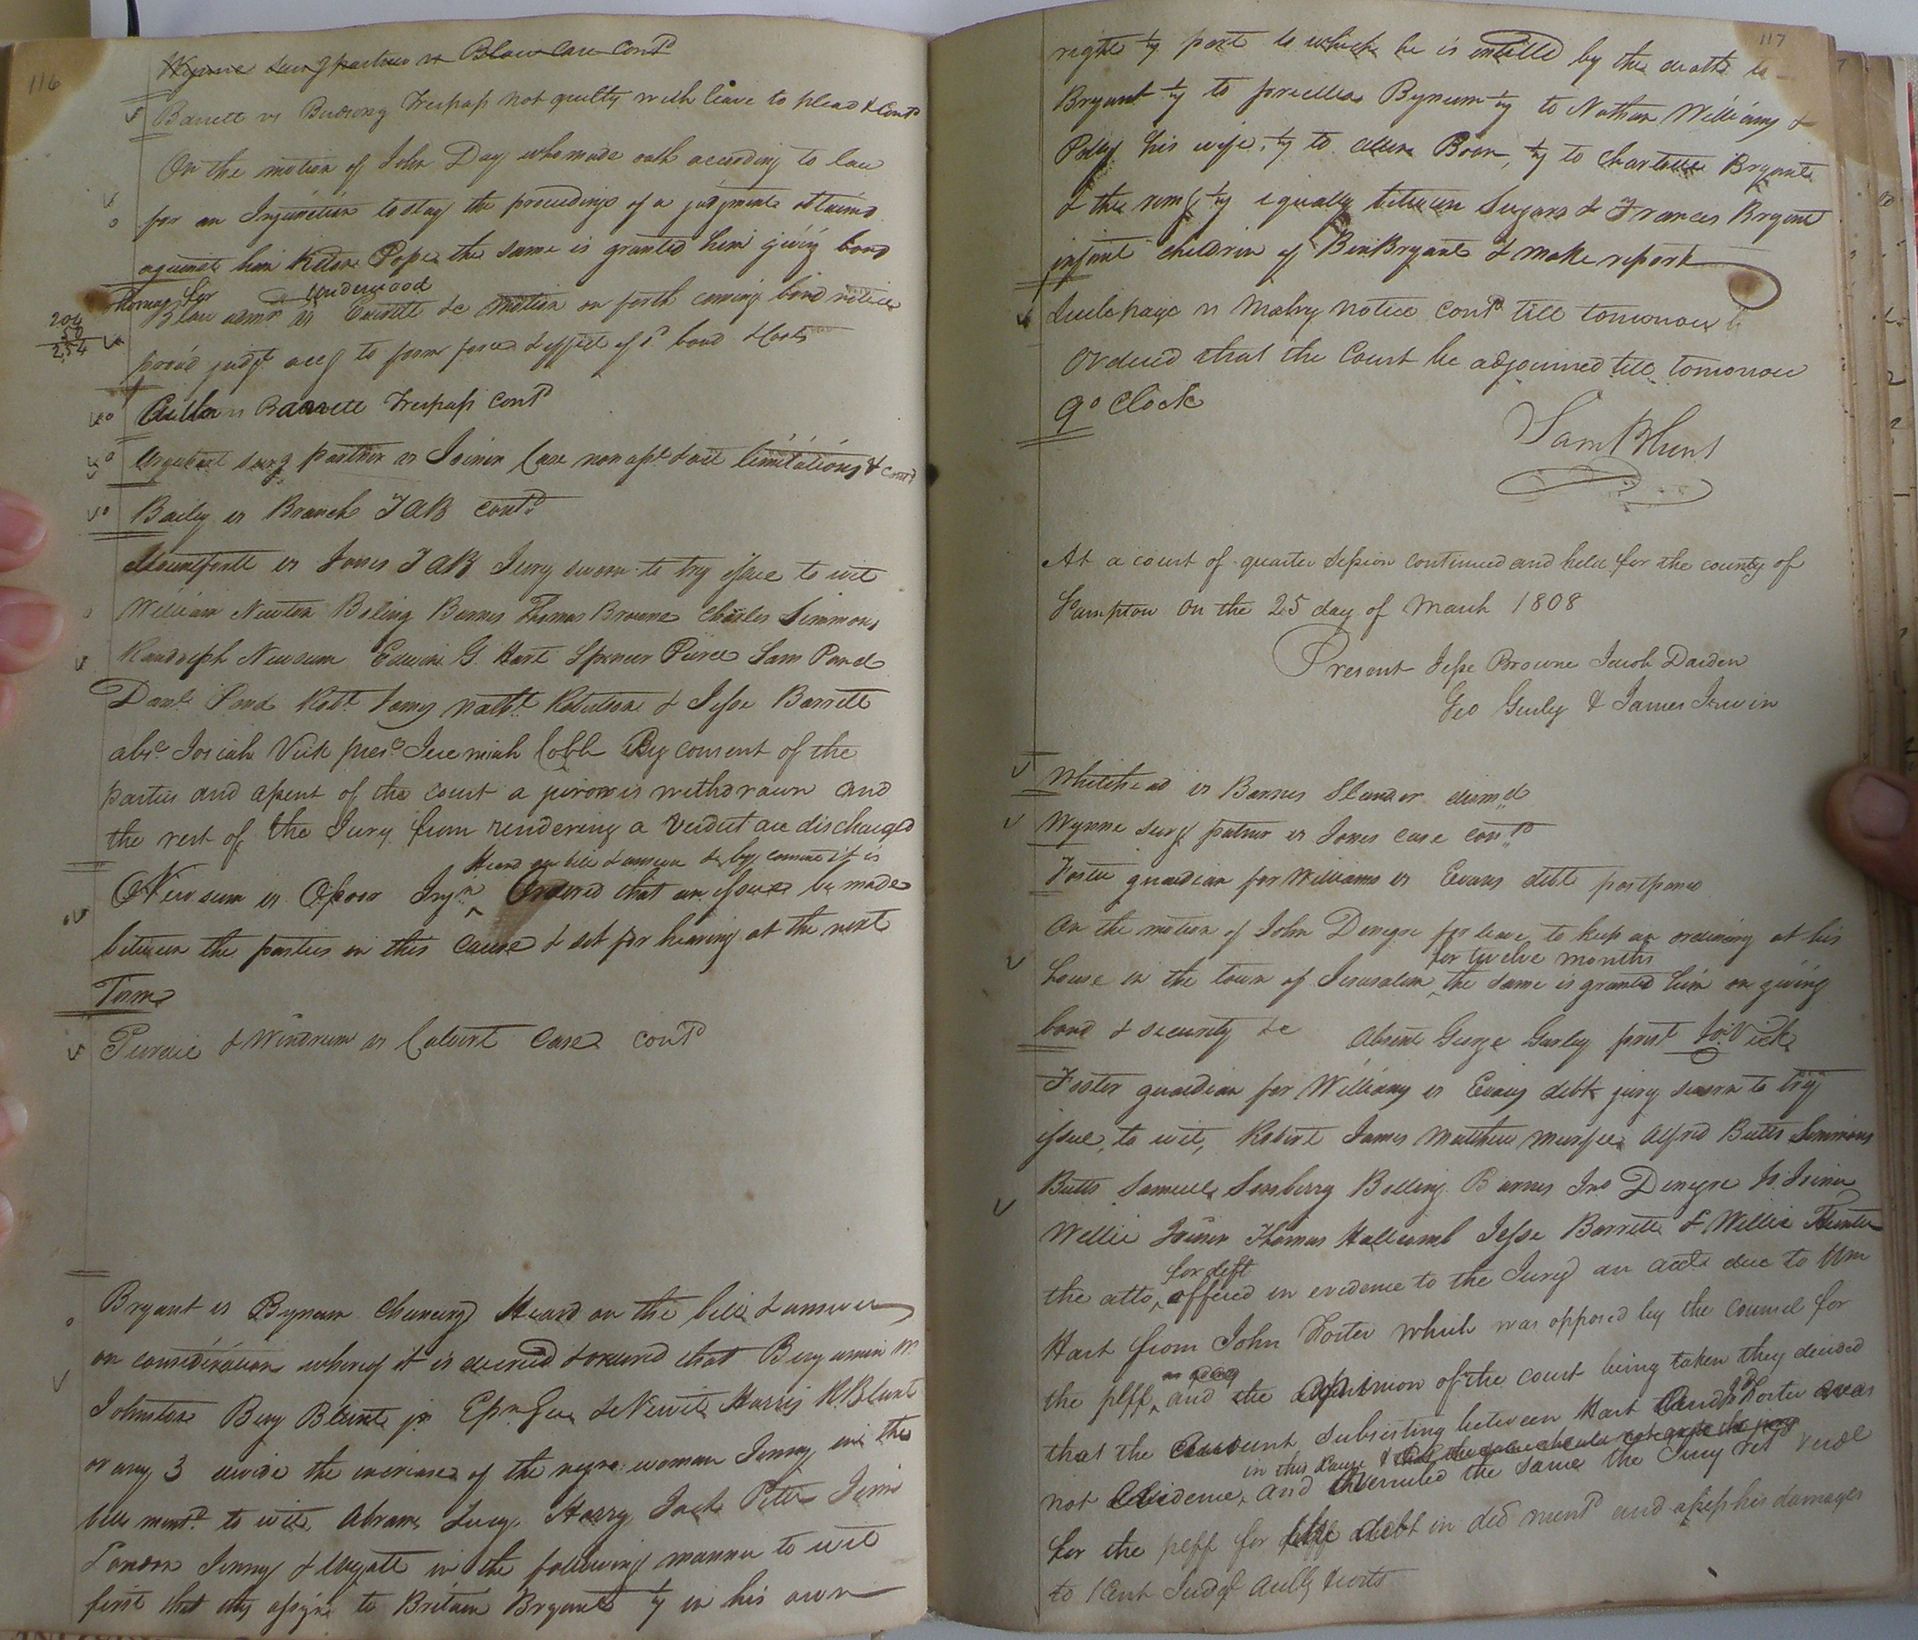 116
Wynne surv partner vs Blow case contd
Barrett vs Bittle Trespass not guilty with leave to plead & contd
On the motion of John Day who made oath according to law
for an Injunction to stay the proceedings of a judgment obtained
against him the same is granted him giving bond
Thomas for
Underwood
Blow vs Everitt &c motion on forth coming bond notice
204
50
254
prov'd judgt accg to form force & effect of sd bond & costs
vs Barrett Trespass contd
surv partner vs Joiner Case non asst & act limitations & contd
Bailey vs Branch TAB contd
Mountfortt vs Jones TAB Jury sworn to try issue to wit
William Newton Boling Barnes Thomas Browne Charles Simmons
Randolph Newsum Edwin G. Hart Spencer Pierce Sam Pond
Danl Pond Robt James Nathl & Jesse Barrett
absc Josiah Vick presc Jeremiah Cobb By consent of the
parties and assent of the court a juror is withdrawn and
the rest of the Jury from rendering a verdict are discharged
Heard on bill & answer & by consent it is
Newsum vs Injn ^ Ordered that an issue be made
between the parties in this cause & set for hearing at the next
Term
Purdie & Windrum vs Calvert Case contd
Bryant vs Bynum Chancery Heard on the bill & answer
on consideration whereof it is decreed & ordered that Benjamin W.
Johnston Benj Blunt jr Harris R. Blunt
or any 3 divide the increase of the negro woman Jenny in the
bill mentd to wit, Abram Lucy Harry Jack Peter Jim
London Jenny & in the following manner to wit
first that they assign to Britain Bryant 1/7 in his own
117
right 1/7 part to which he is entitled by the death
Bryant 1/7 to Bynum 1/7 to Nathan Williams &
Polly his wife, 1/7 to Boon, 1/7 to Charlotte Bryant
& the remg 1/7 equally between Sugars & Frances Bryant
infant children of Ben Bryant & make report
vs Mabry notice contd till tomorrow
Ordered that the Court be adjourned till tomorrow
9 o Clock
Sam Blunt
At a court of quarter session continued and held for the county of
Southampton on the 25 day of March 1808
Present Jesse Browne Jacob Darden
Geo Gurley & James Irwin
Whitehead vs Barnes Slander dismd
Wynne surg partner vs Jones case contd
Foster guardian for Williams vs Evans debt postponed
On the motion of John Denegre for leave to keep an ordinary at his
for twelve months
house in the town of Jerusalem ^ the same is granted him on giving
bond & security &c Absent George Gurley prest Jo: Vick
Foster guardian for Williams vs Evans debt jury sworn to try
issue, to wit, Robert James Matthew Murfee Alfred Butts Simmons
Butts Samuel Sorsberry Bolling Barnes Jno Denegre Js Joiner
Willie Joiner Thomas Hallcomb Jesse Barrett & Willie Hunter
for deft
the atto ^ offered in evidence to the Jury an acct due to Wm
Hart from John Foster which was opposed by the counsel for
the plff ^ and the opinion of the court being taken they decided
that the account subsisting between Hart and Jno Foster was
in this cause &
not evidence ^ and overruled the same the Jury retd verdt
for the plff for the debt in decl mentd and assess his damages
to 1 Cent Judgt accdg & costs